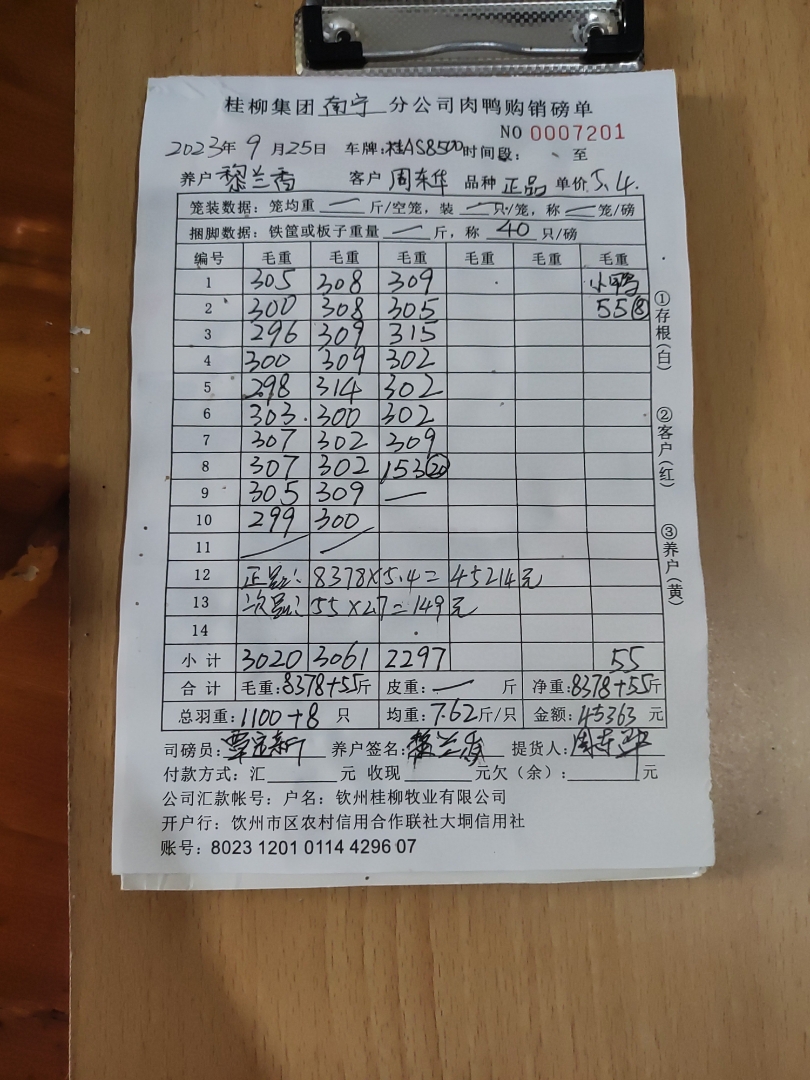 桂柳集团南宁分公司肉鸭购销磅单
NO 0007201
2023年9月25日 车牌:桂AS8500时间段: 至
养户黎兰香 客户周东华 品种正品 单价5.4.
笼装数据:笼均重一斤/空笼,装一只/笼,称一笼/磅
捆脚数据:铁筐或板子重量一斤,称40只/磅
编号 毛重 毛重 毛重 毛重 毛重 毛重
1 305 308 309 小鸭
2 300 308 305 55⑧
3 296 309 315
4 300 309 302
5 298 314 302
6 303. 300 302
7 307 302 309
8 307 302 153⑳
9 305 309 —
10 299 300
11 / /
12 正品: 8378×5.4=45214元
13 次品: 55×2.7=149元
14
小计 3020 3061 2297 55
合计 毛重:8378+55斤 皮重:一斤 净重:8378+55斤
总羽重:1100+8只 均重:7.62斤/只 金额:45363元
司磅员: 养户签名:黎兰香 提货人:周东华
付款方式:汇 元 收现 元欠(余): 元
公司汇款帐号:户名:钦州桂柳牧业有限公司
开户行:钦州市区农村信用合作联社大垌信用社
账号:8023 1201 0114 4296 07
①存根(白)
②客户(红)
③养户(黄)